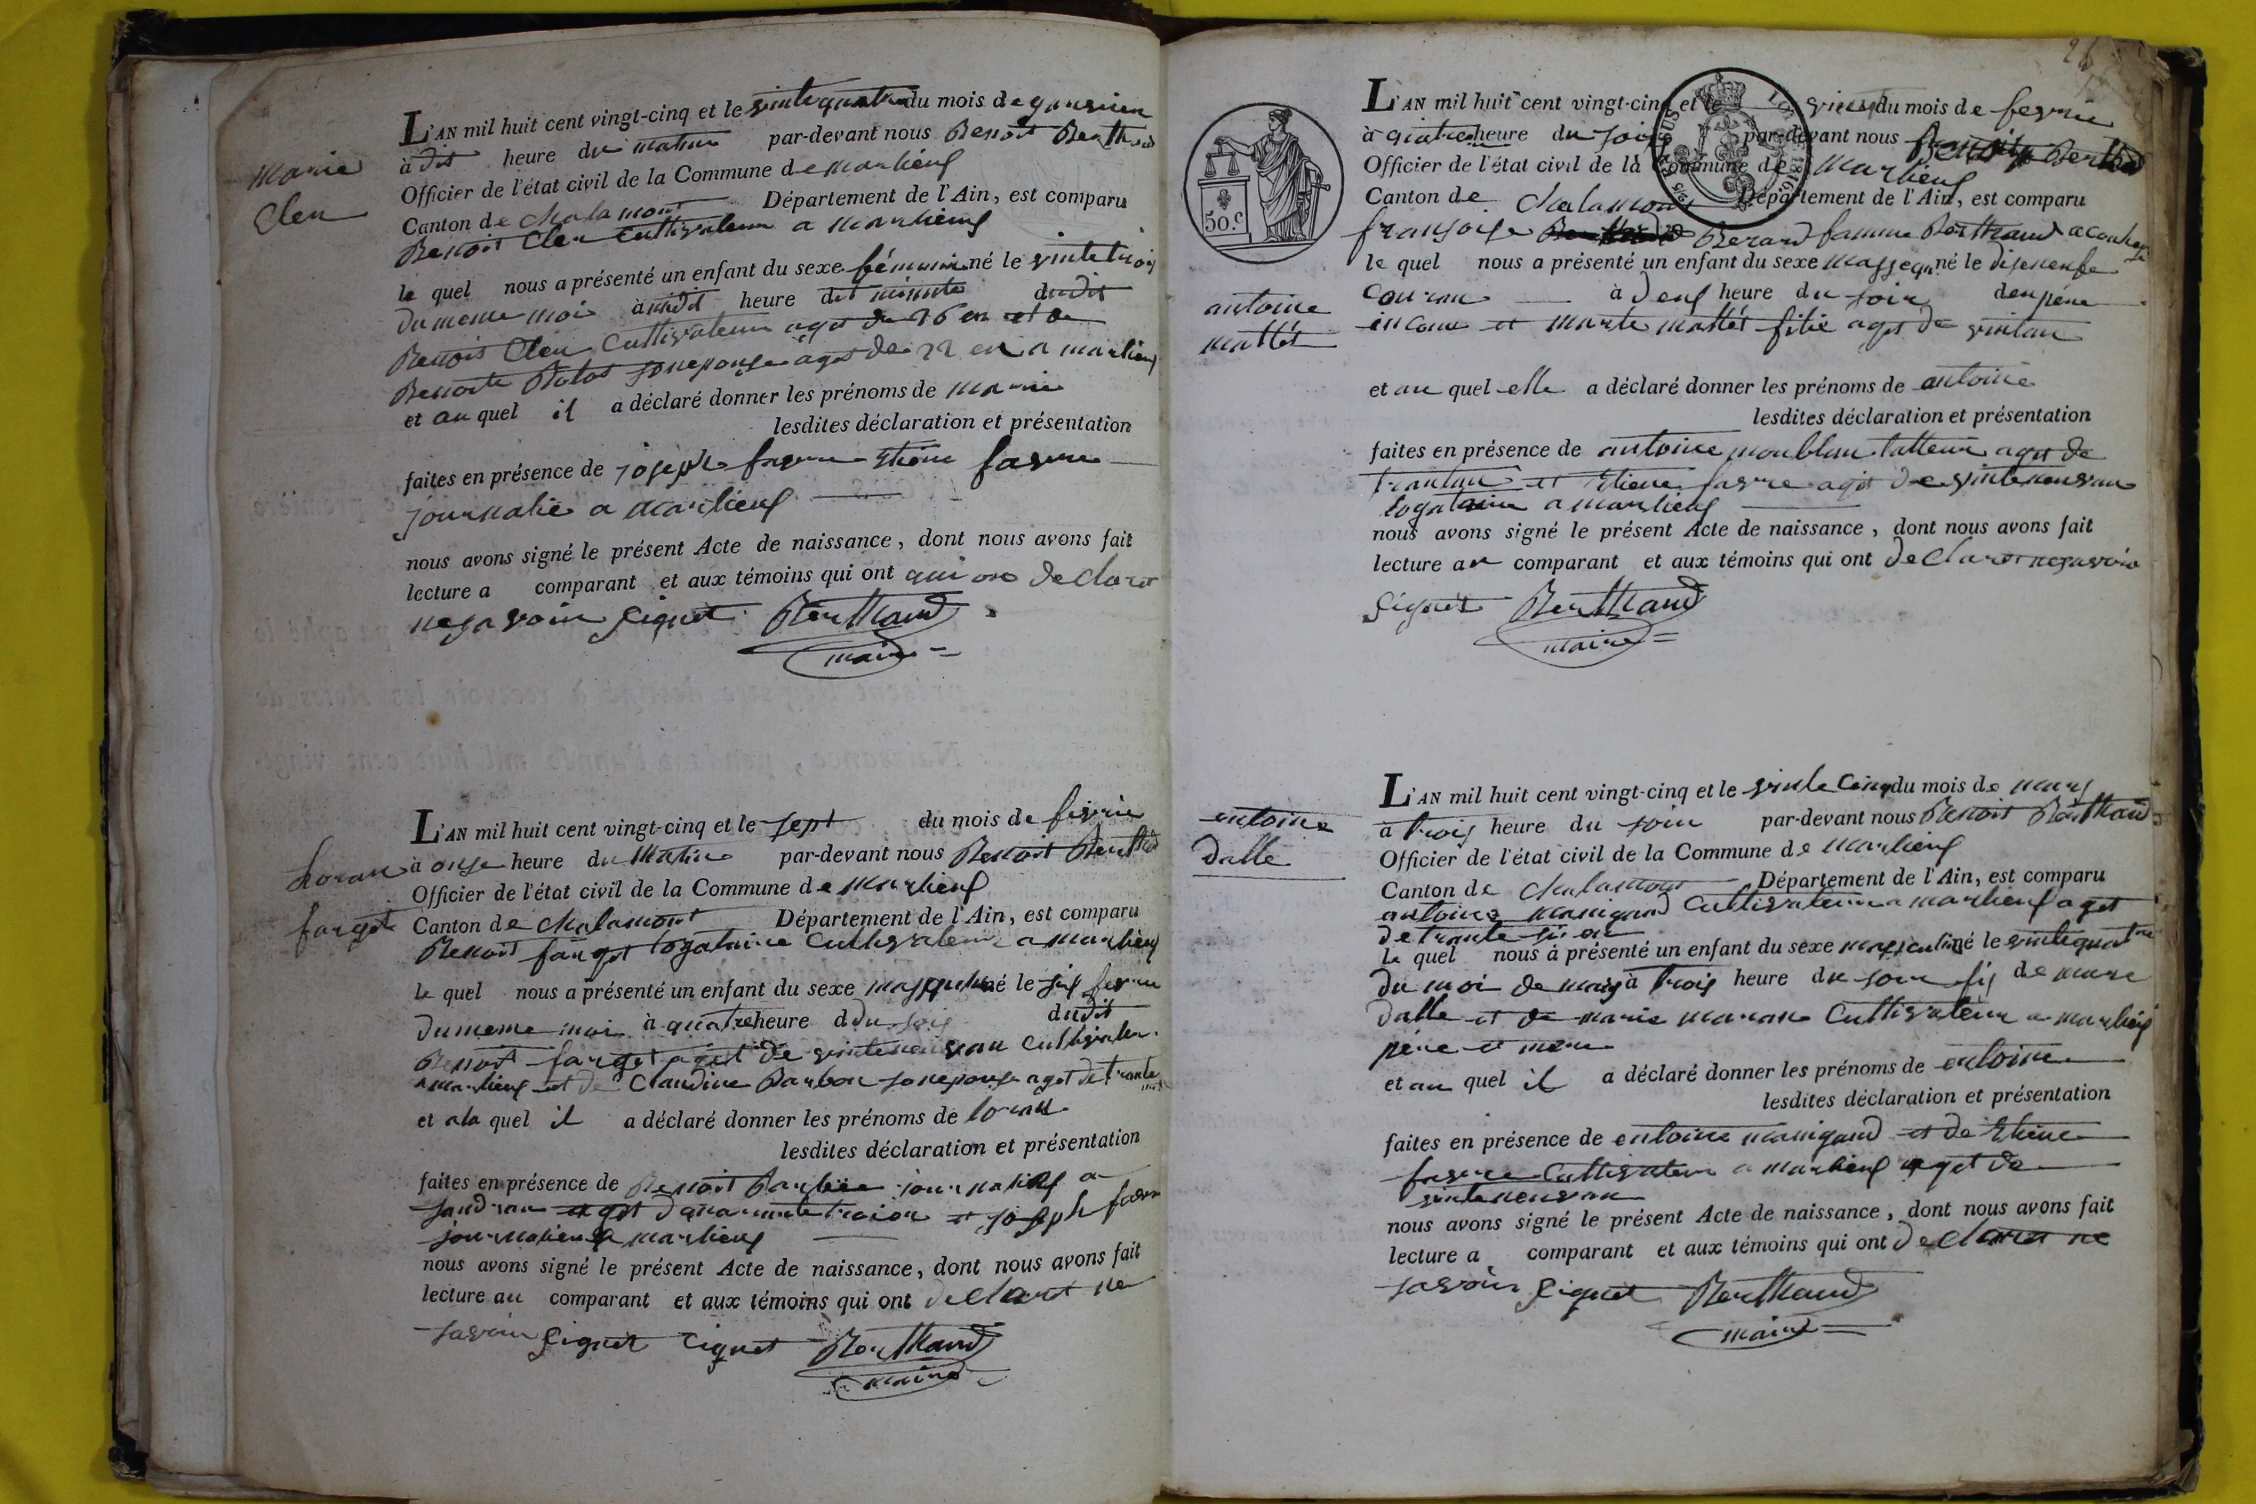 marie
Cleu
L'AN mil huit cent vingt-cinq et le vintequatre du mois de
à dit heure du matin par-devant nous Benoit Berthaud
Officier de l'état civil de la Commune de marlieuf
Canton de Chalamont Département de l'Ain, est comparu
Benoit Cleu Cultivateur a marlieuf
le quel nous a présenté un enfant du sexe féminin né le vintetrois
du meme moi à midit heure dudit
Benoit Cleu Cultivateur aget de 26 en et de
Benoite sonepouse aget de 22 en a marlieuf
et au quel il a déclaré donner les prénoms de marie
lesdites déclaration et présentation
faites en présence de joseph favre Etiene favre
journalie a marlieuf
nous avons signé le présent Acte de naissance, dont nous avons fait
lecture a comparant et aux témoins qui ont qui on declaret
nesavoir signet Berthaud
maire
loran
farget
L'AN mil huit cent vingt-cinq et le sept du mois de fevrie
à onze heure du Matin par-devant nous Benoit Berthaud
Officier de l'état civil de la Commune de marlieuf
Canton de Chalamont Département de l'Ain, est comparu
Benoit farget logataire Cultivateur a marlieuf
le quel nous a présenté un enfant du sexe né le six
du meme moi à quatre heure d du soir dudit
Benoit farget aget de vinteneuvan Cultivateur
a marlieuf et de Claudine Barbon sonepouse aget de trante
et ala quel il a déclaré donner les prénoms de loran
lesdites déclaration et présentation
faites en présence de Benoit journalie a
aget et joseph favre
journalieu a marlieuf
nous avons signé le présent Acte de naissance, dont nous avons fait
lecture au comparant et aux témoins qui ont declaret ne
savoir signet signet Berthaud
maire
26
50.c
antoine
mattét
L'AN mil huit cent vingt-cinq et le vint du mois de fevrie
à quatre heure du soir par-devant nous Benoit Berthaud
Officier de l'état civil de la Commune de marlieuf
Canton de Chalamont Département de l'Ain, est comparu
fransoise Berard famme Berthaud
le quel nous a présenté un enfant du sexe né le disneufe
couran à deux heure du soir dunpére
inconu et marte mattét filie aget de vintan
et au quel elle a déclaré donner les prénoms de antoine
lesdites déclaration et présentation
faites en présence de antoine aget de
trantan et Etiene favre aget de vinteneuvan
logataire a marlieuf
nous avons signé le présent Acte de naissance, dont nous avons fait
lecture au comparant et aux témoins qui ont declaret nesavoir
signet Berthaud
maire
entoine
dalle
L'AN mil huit cent vingt-cinq et le vinte cinq du mois de mars
à trois heure du soir par-devant nous Benoit Berthaud
Officier de l'état civil de la Commune de marlieuf
Canton de Chalamont Département de l'Ain, est comparu
antoine manigand Cultivateur a marlieuf aget
de trante si en
le quel nous à présenté un enfant du sexe masculin né le vintequatre
du moi de mars à trois heure du soir fis de
dalle et de marie Cultivateur a marlieuf
père et mere
et au quel il a déclaré donner les prénoms de entoine
lesdites déclaration et présentation
faites en présence de entoine manigand et de Etiene
favre Cultivateur a marlieuf aget de
vinteneuvan
nous avons signé le présent Acte de naissance, dont nous avons fait
lecture a comparant et aux témoins qui ont declaret ne
savoir signet Berthaud
maire